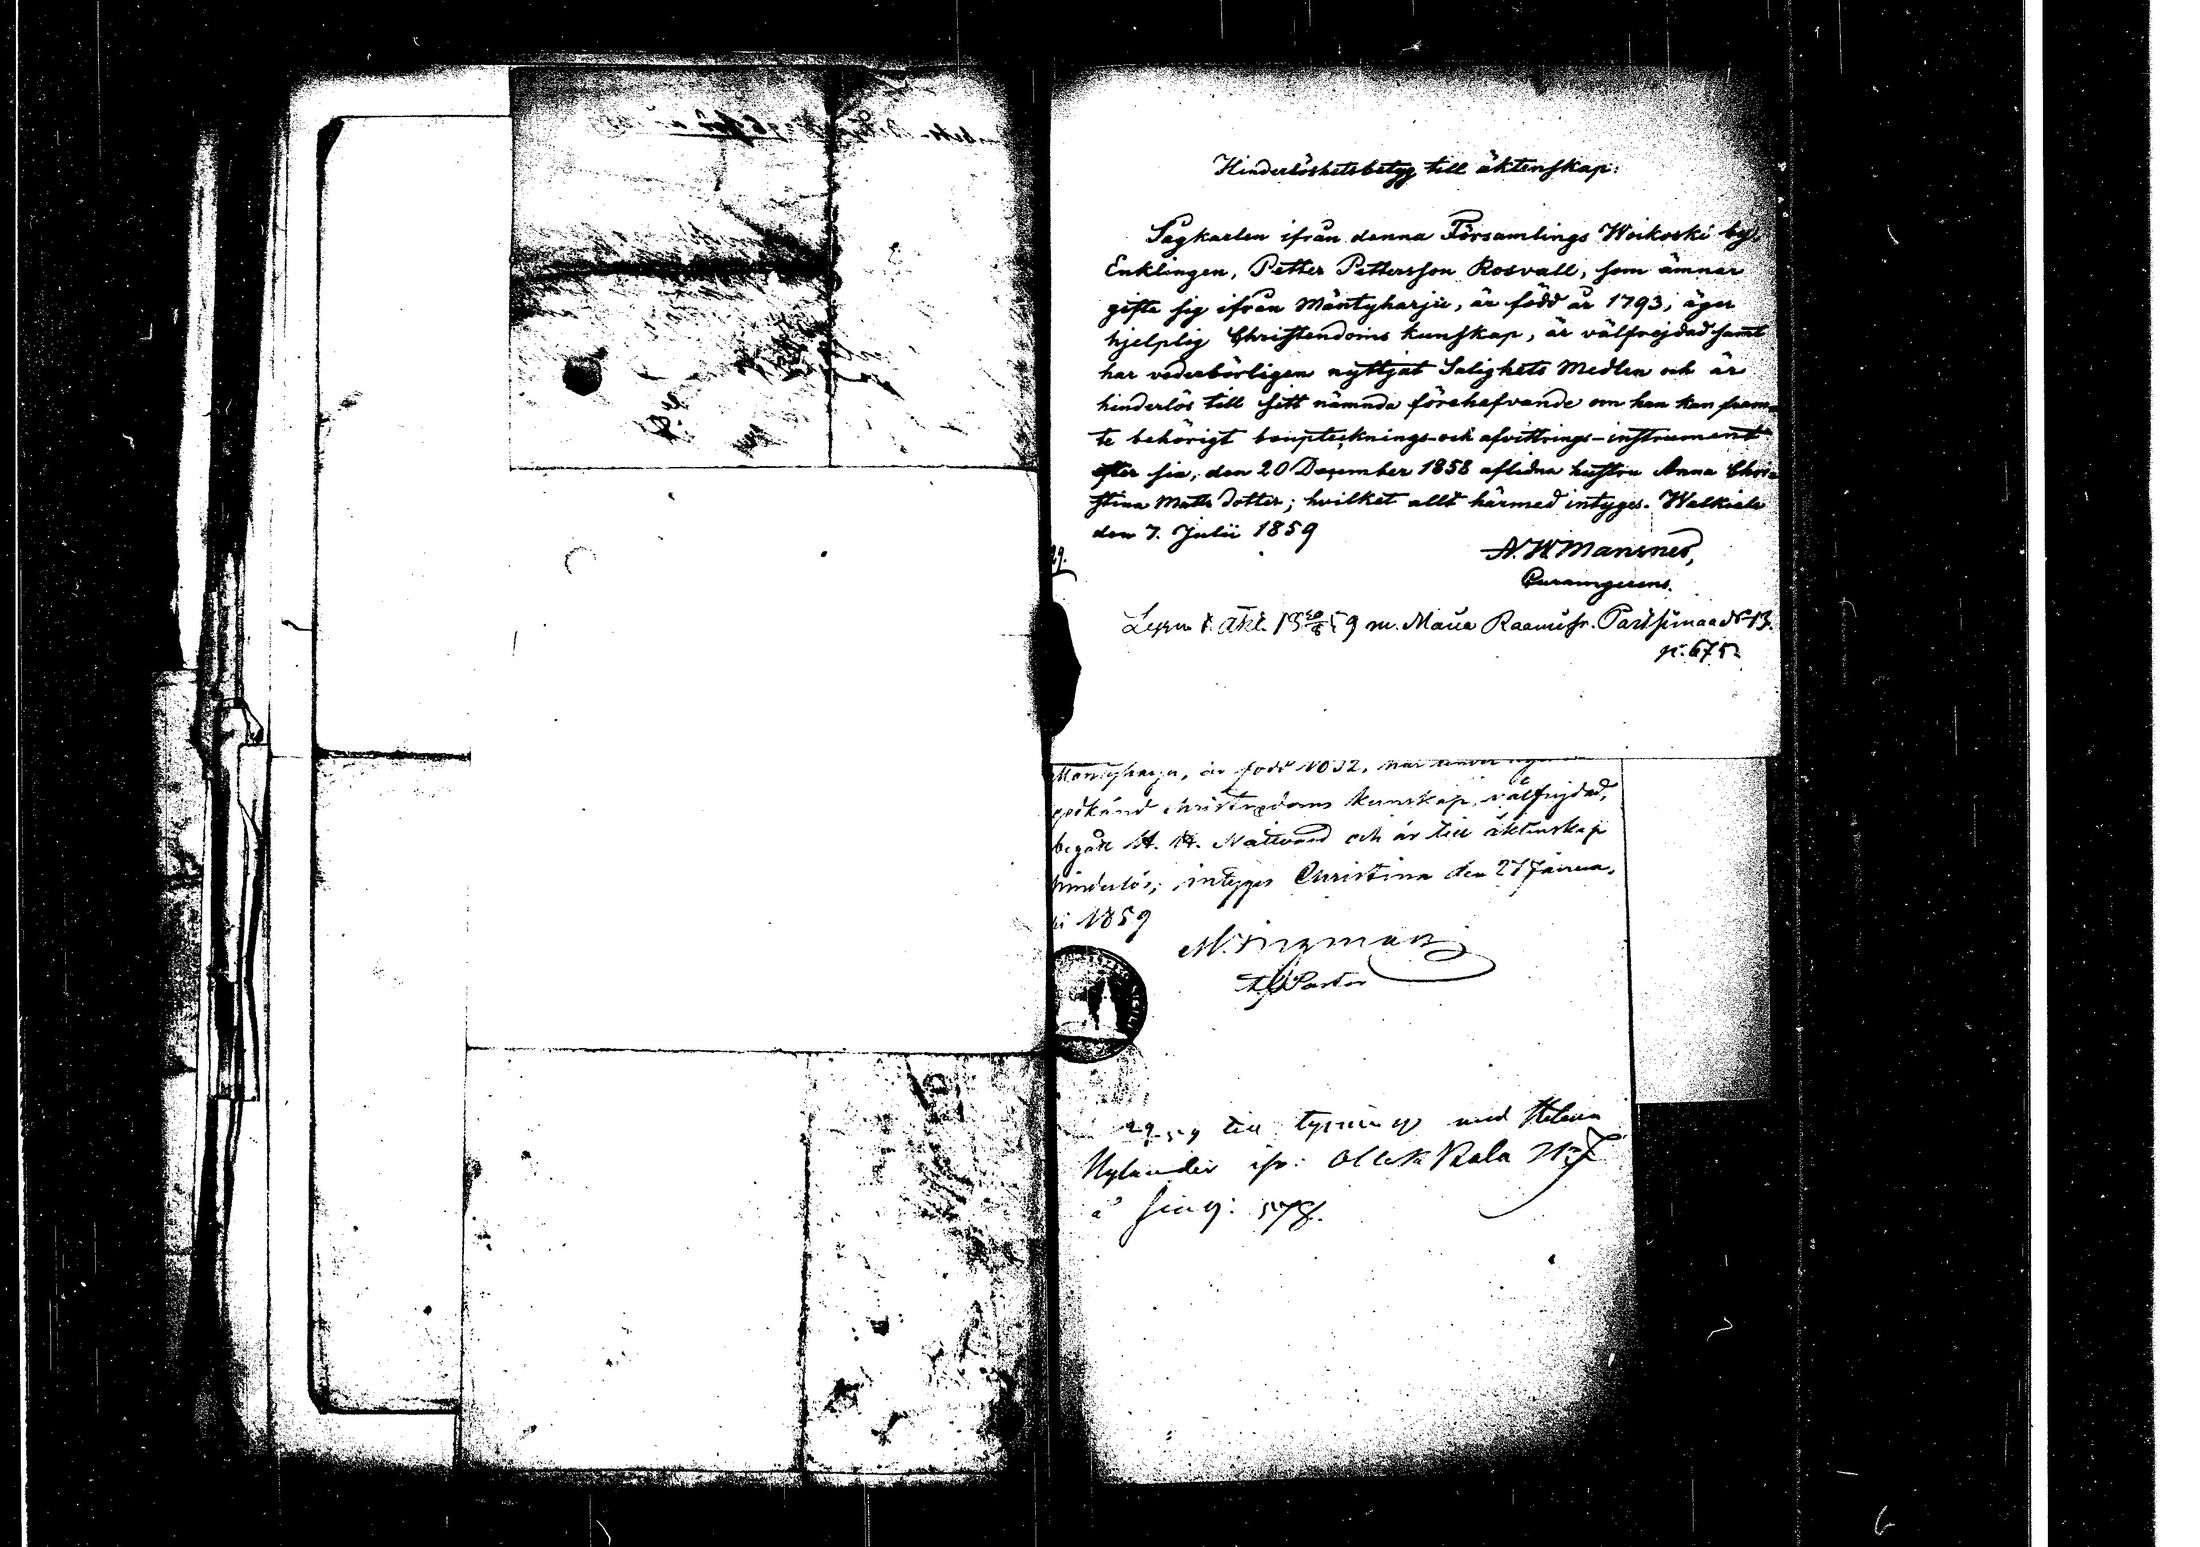 Hinderlöshetsbetyg till äktenskap:
Sågkarlen ifrån denna Församlings Woikoski by,
Enklingen, Petter Pettersson Rosvall, som ämnar
gifta sig ifrån Mäntyharju, är född år 1793, äger
hjelplig Christendoms kunskap, är välfrejdad samt
har vederbörligen nyttjat Salighets Medlen och är
hinderlös till sitt nämnda förehafvande om han kan fram-
te behörigt bouptecknings- och afvittrings-instrument
efter sin, den 20 December 1858 aflidna hustru Anna Chri-
stina Matts dotter; hvilket allt härmed intyges. Walkiala
den 7. Julii 1859
A. W. Mansner,
Curamgerens.
m. Maria
p. 675
Mäntyharju, är född 1832, har
godkänd christendoms kunskap, välfrejdad,
begått H. H. Nattvard och är till äktenskap
hinderlös; intyges Christina den 27 Janua-
rii 1859
Pastor
till lysning med Helena
Nylander ifr: Ollikkala
å sing: 578.